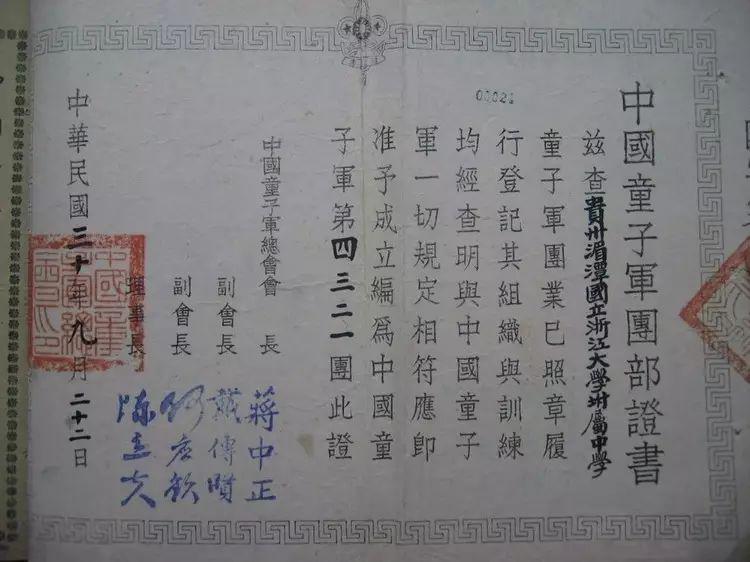 中國童子軍團部證書
茲查貴州湄潭國立浙江大學附屬中學
童子軍團業已照章履
行登記其組織與訓練
均經查明與中國童子
軍一切規定相符應即
准予成立編為中國童
子軍第四三二一團此證
00021
中國童子軍總會會長 蔣中正
副會長 戴傳賢
副會長 何應欽
理事長 陳立夫
中華民國三十年九月二十二日